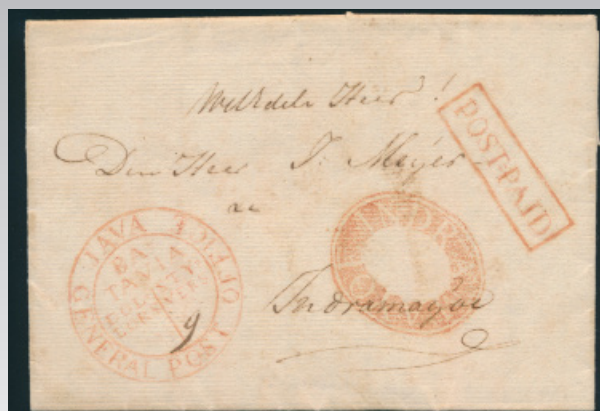 WelEdele Heer!
POST-PAID
Den Heer J: Meyer
te
INDRAMA
Indramayoe
JAVA GENERAL POST OFFICE
BATA
9